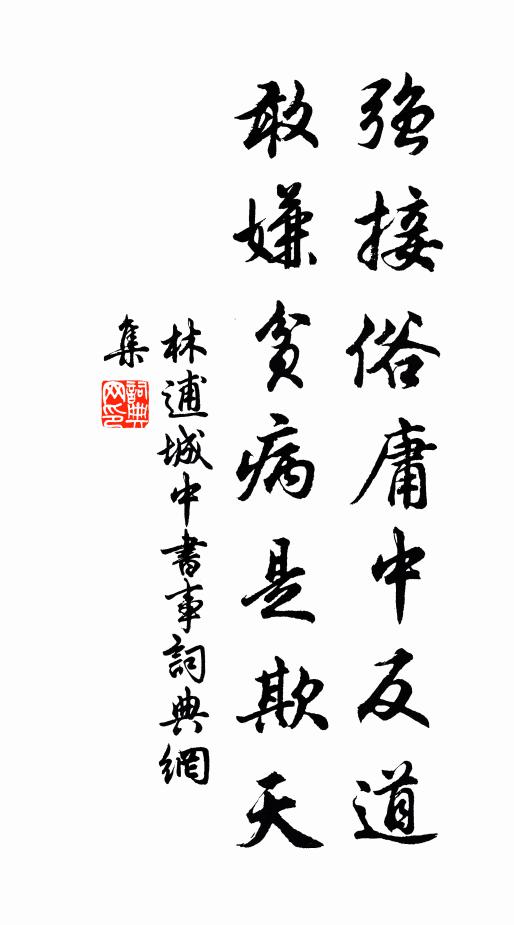 强接俗庸中反道
敢嫌贫病是欺天
林逋城中書事詞典網
集
詞典网印